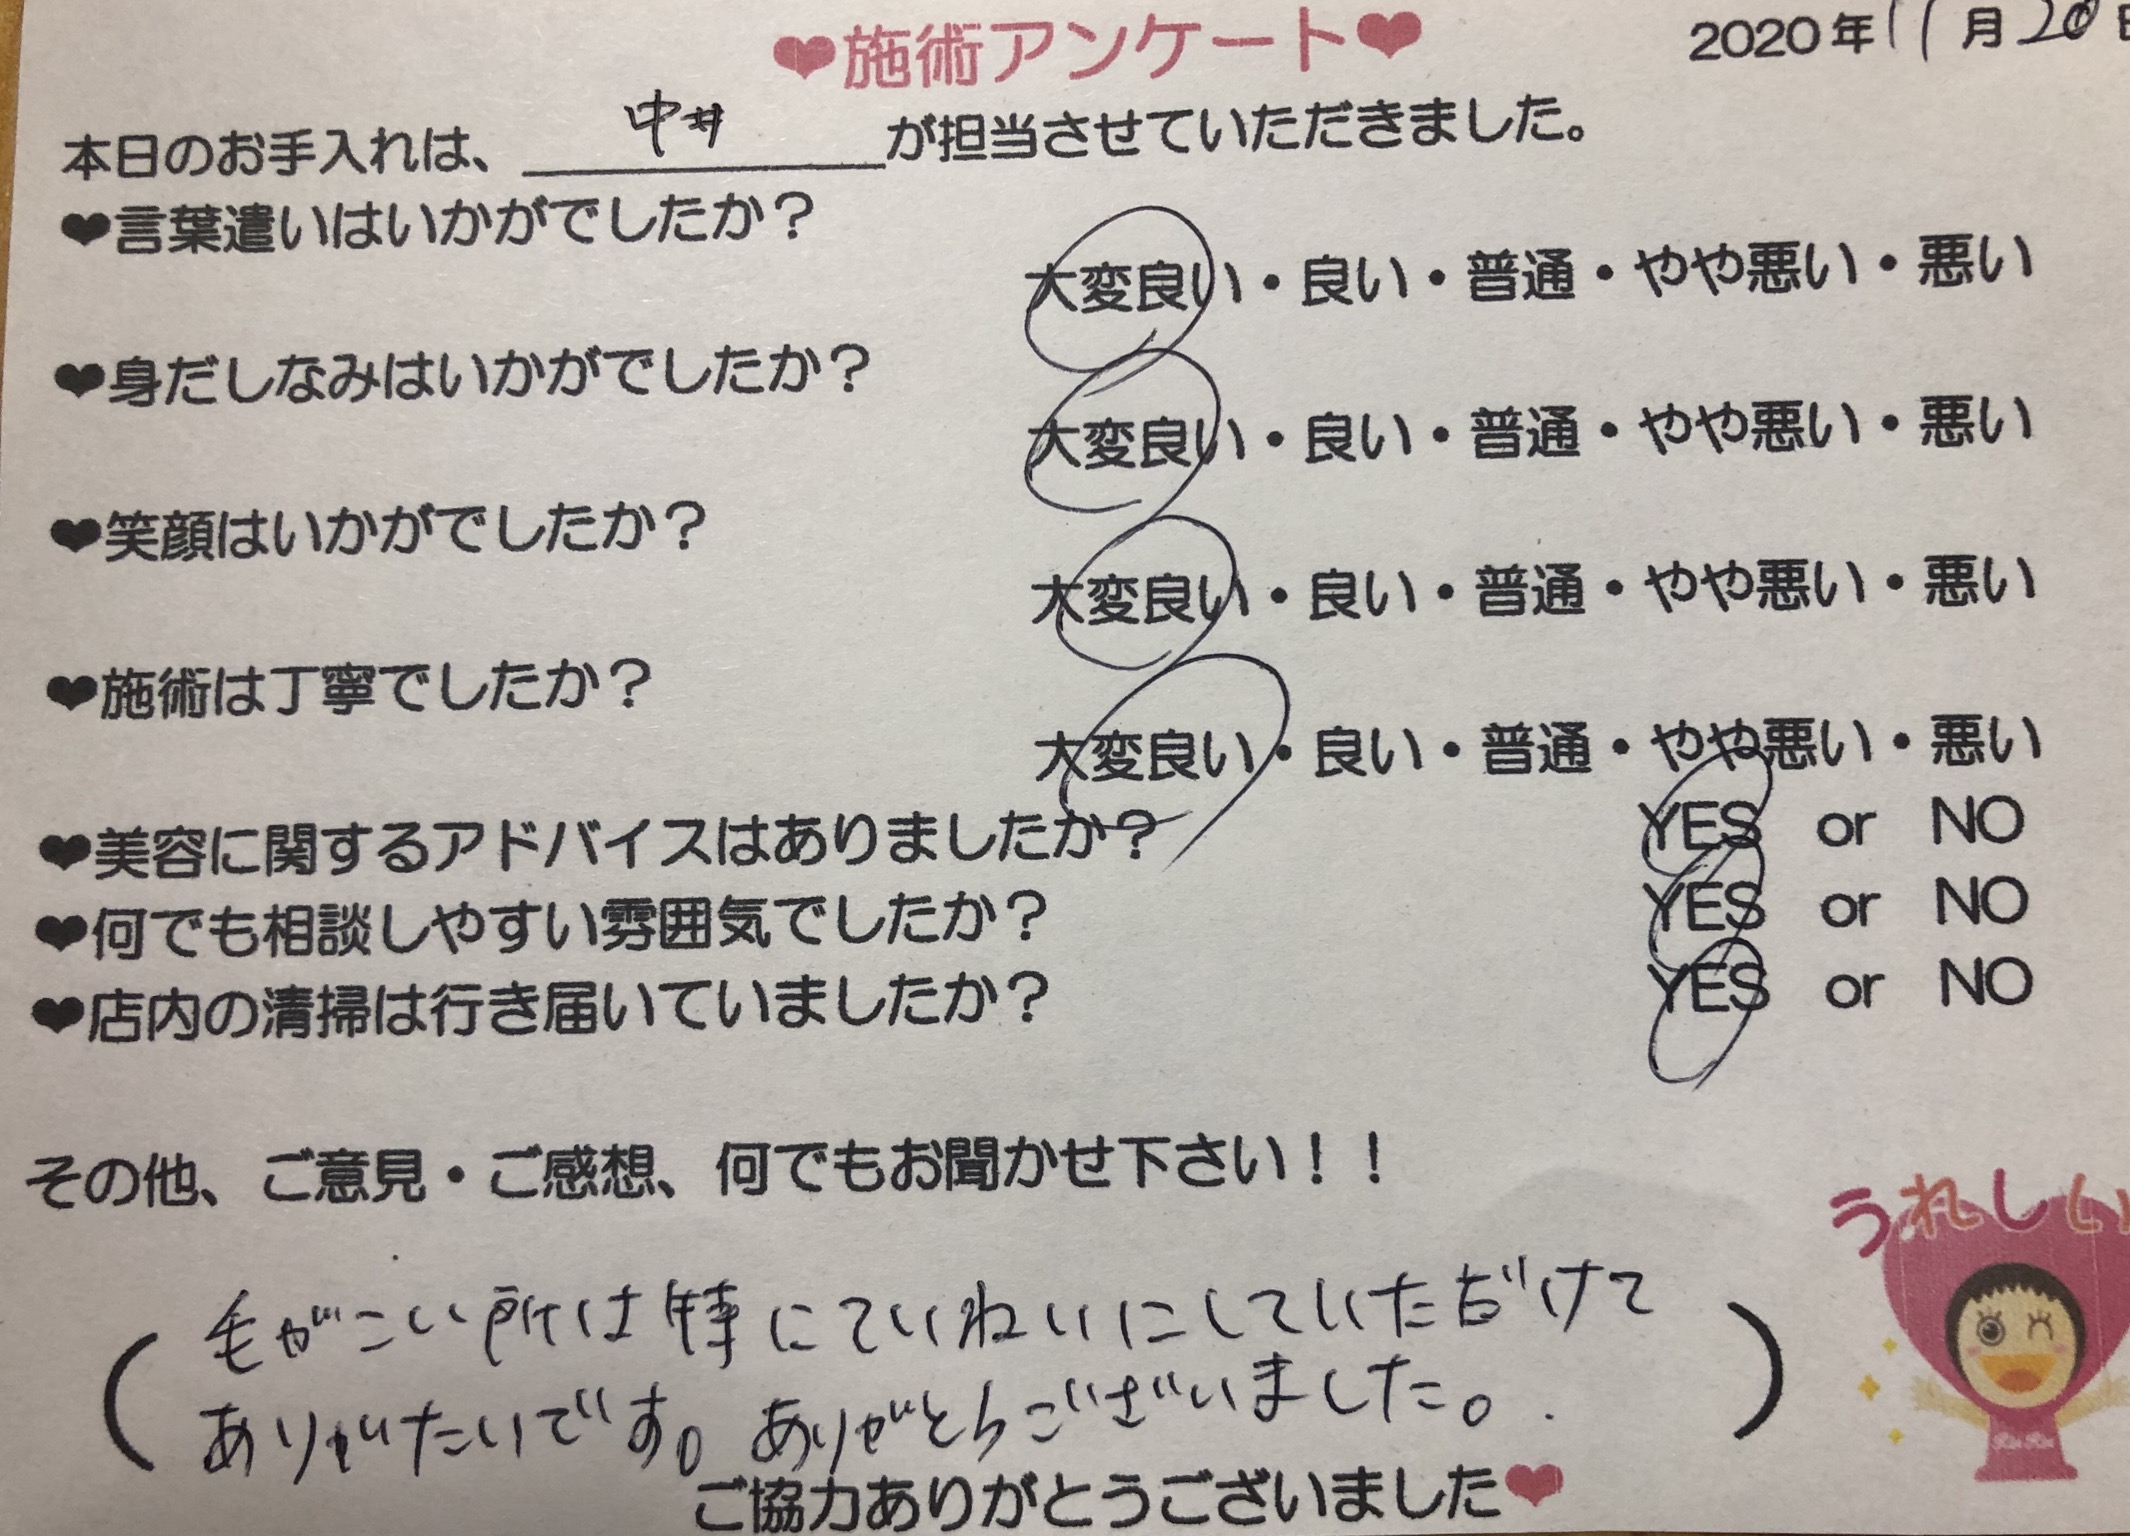 ❤施術アンケート❤
2020年11月20日
本日のお手入れは、中井が担当させていただきました。
❤言葉遣いはいかがでしたか?
大変良い・良い・普通・やや悪い・悪い
❤身だしなみはいかがでしたか?
大変良い・良い・普通・やや悪い・悪い
❤笑顔はいかがでしたか?
大変良い・良い・普通・やや悪い・悪い
❤施術は丁寧でしたか?
大変良い・良い・普通・やや悪い・悪い
❤美容に関するアドバイスはありましたか? YES or NO
❤何でも相談しやすい雰囲気でしたか? YES or NO
❤店内の清掃は行き届いていましたか? YES or NO
その他、ご意見・ご感想、何でもお聞かせ下さい!!
うれしい
(毛がこい所は特にていねいにしていただけて
ありがたいです。ありがとうございました。)
ご協力ありがとうございました❤